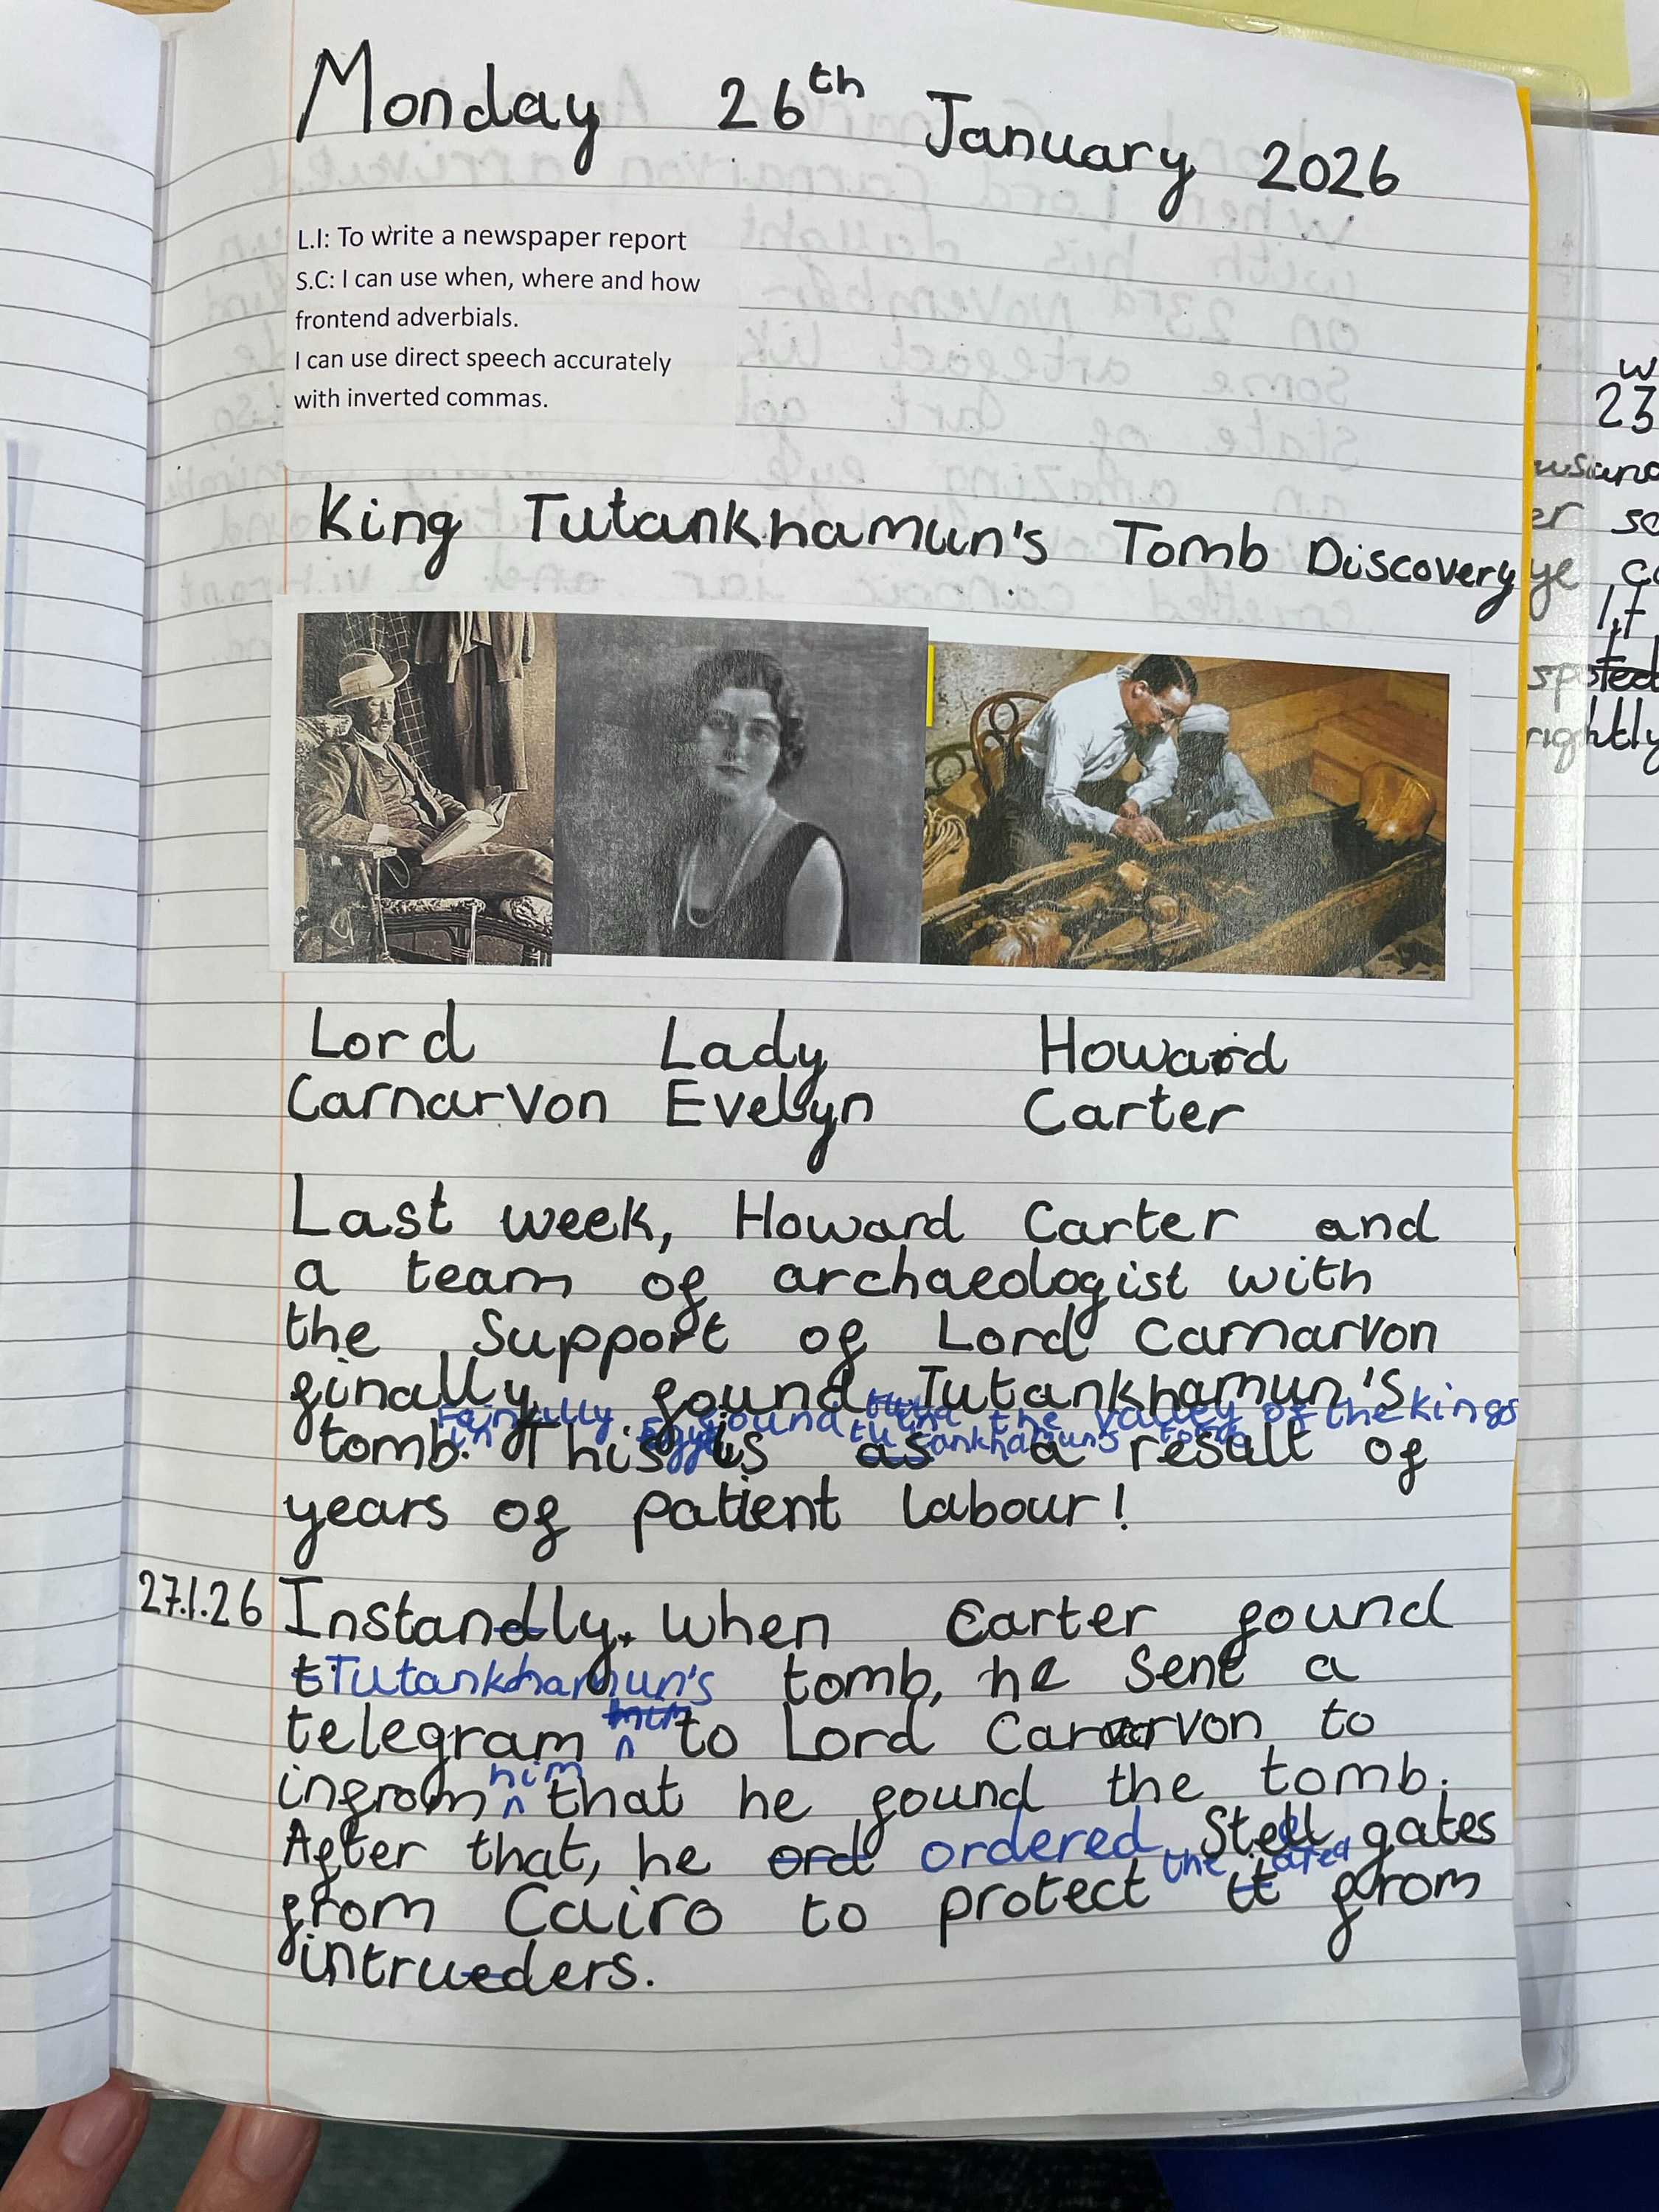 Monday 26th January 2026
L.I: To write a newspaper report
S.C: I can use when, where and how
frontend adverbials.
I can use direct speech accurately
with inverted commas.
King Tutankhamun's Tomb Discovery
Lord Lady Howard
Carnarvon Evelyn Carter
Last week, Howard Carter and
a team of archaeologist with
the Support of Lord Carnarvon
finally found Tutankhamun's
found the valley of the kings
in Egypt tutankhamun's tomb
tomb. This is as a result of
years of patient labour!
27.1.26 Instandly, when Carter found
tTutankhamun's tomb, he sent a
telegram to Lord Carnarvon to
him
infrom that he found the tomb.
After that, he ord ordered Stell gates
the area
from Cairo to protect it from
intrueders.
w
23
er so
ye
If
spoted
rightly